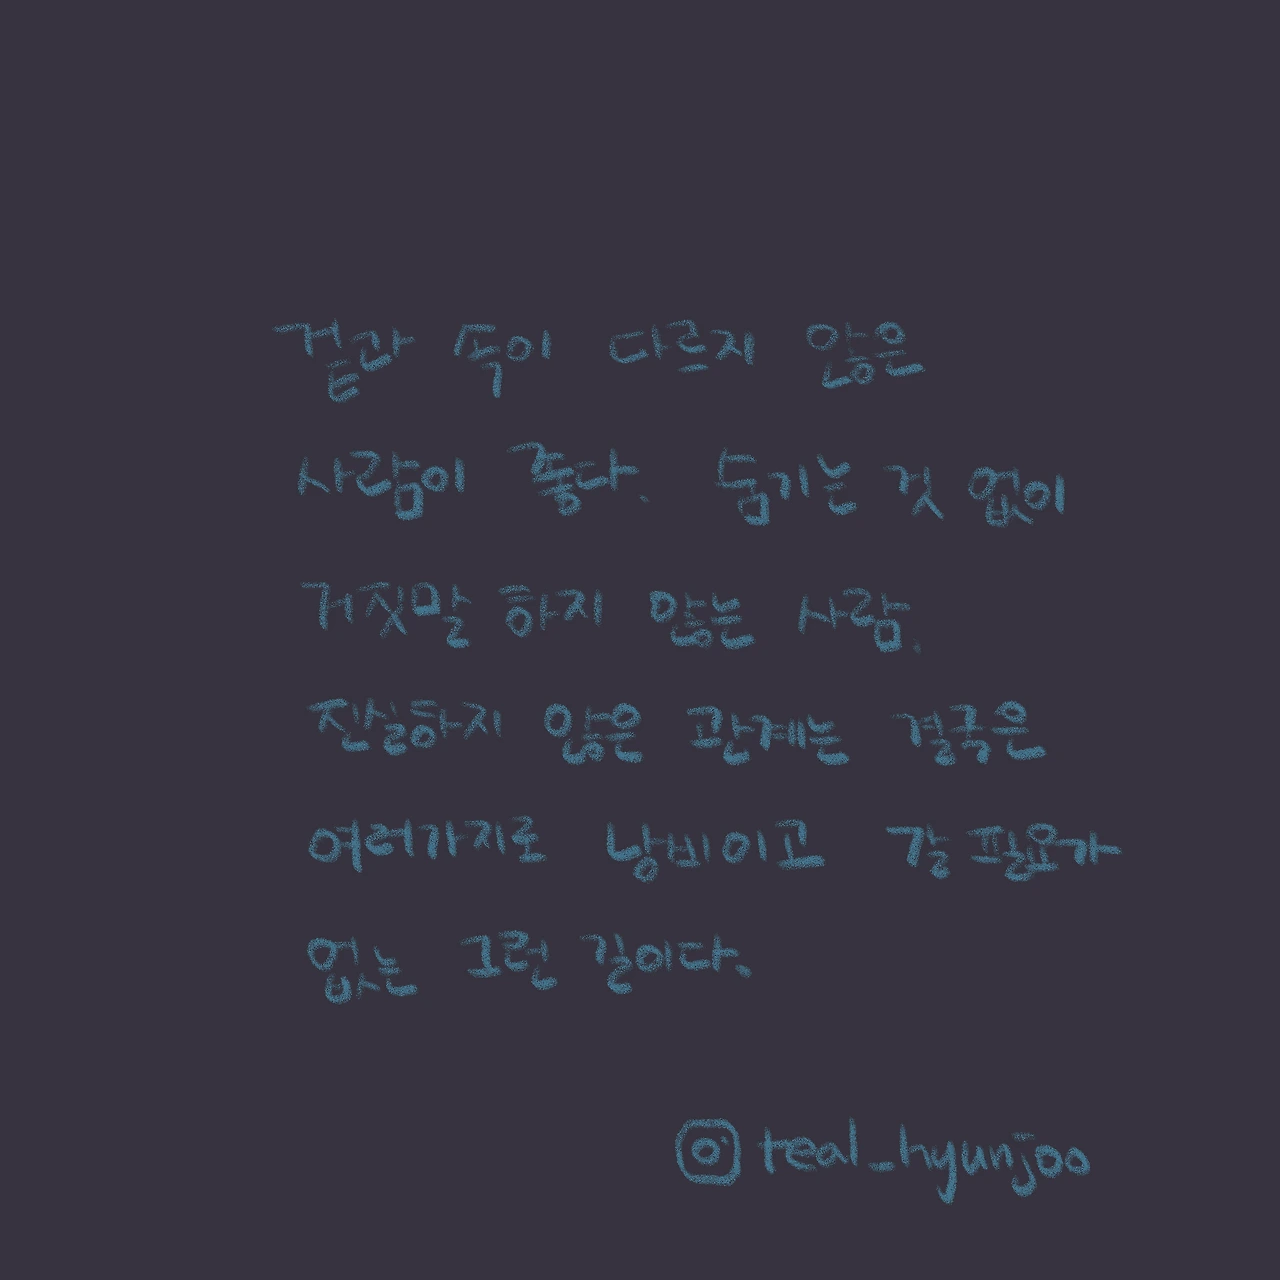 겉과 속이 다르지 않은
사람이 좋다. 숨기는 것 없이
거짓말 하지 않는 사람.
진실하지 않은 관계는 결국은
여러가지로 낭비이고 갈 필요가
없는 그런 길이다.
teal_hyunjoo